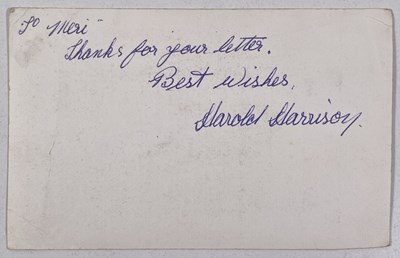 To Meri
Thanks for your letter.
Best Wishes,
Harold Harrison.